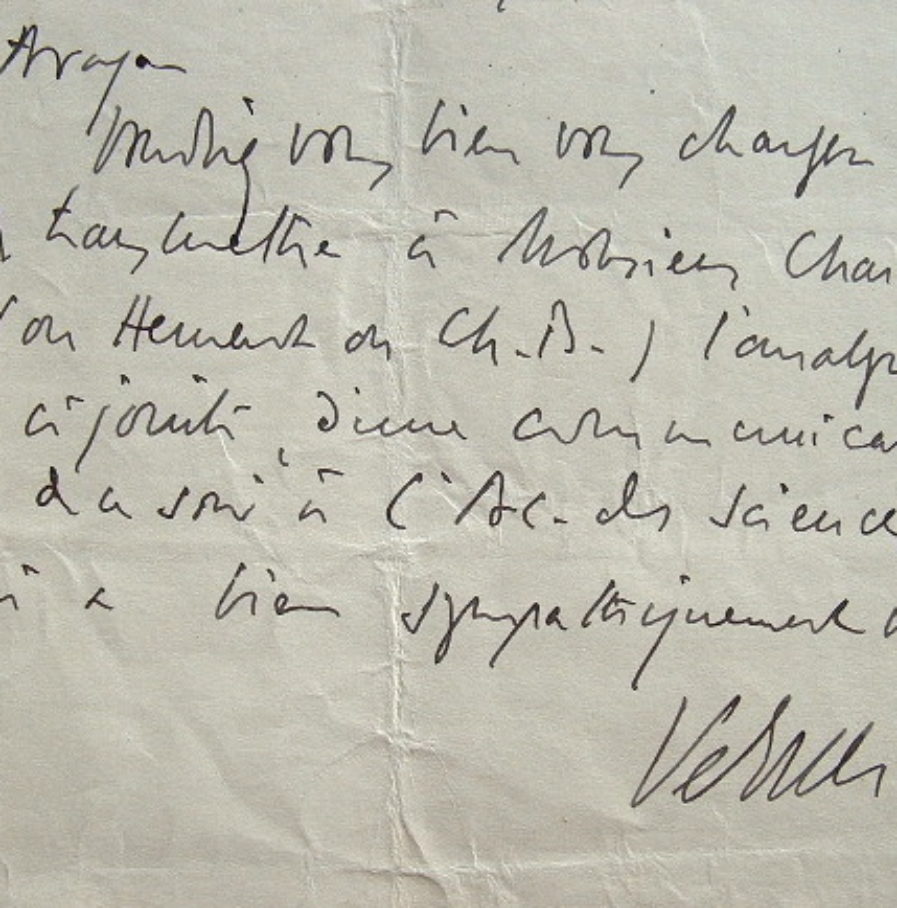 Aragon
Voudriez vous bien vous charger
transmettre à Monsieur Char
on Hement ou Ch. B. ) l'analy
ci jointe d'une communica
à l'Ac. des science
bien sympathiquement